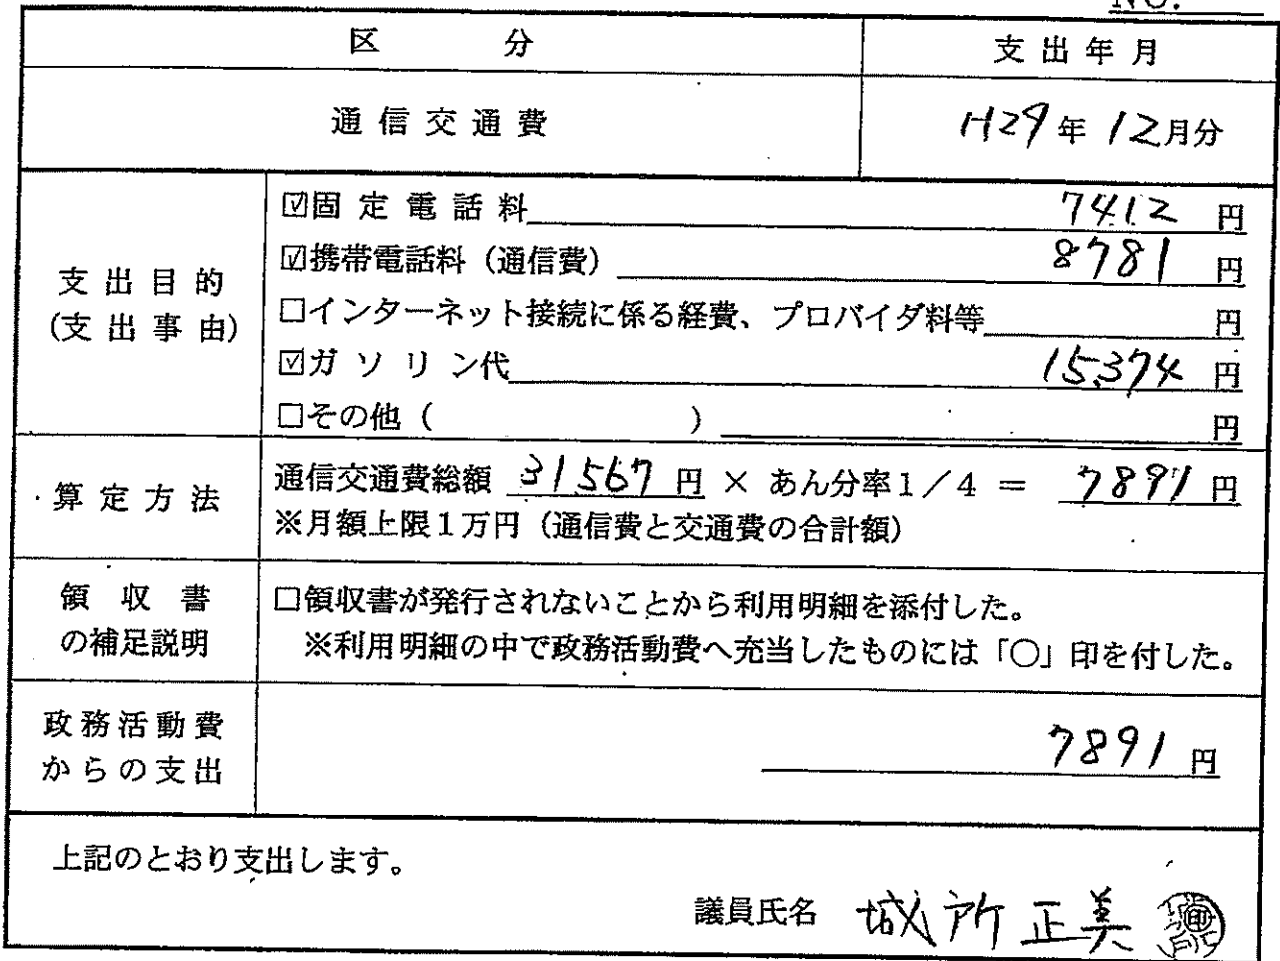 NO.
区 分 支出年月
通信交通費 H29年12月分
支出目的
(支出事由)
☑固定電話料 7412 円
☑携帯電話料（通信費） 8781 円
□インターネット接続に係る経費、プロバイダ料等 円
☑ガソリン代 15374 円
□その他（ ） 円
算定方法
通信交通費総額 31567 円 × あん分率1／4 ＝ 7891 円
※月額上限1万円（通信費と交通費の合計額）
領収書
の補足説明
□領収書が発行されないことから利用明細を添付した。
※利用明細の中で政務活動費へ充当したものには「○」印を付した。
政務活動費
からの支出
7891 円
上記のとおり支出します。
議員氏名 城所正美